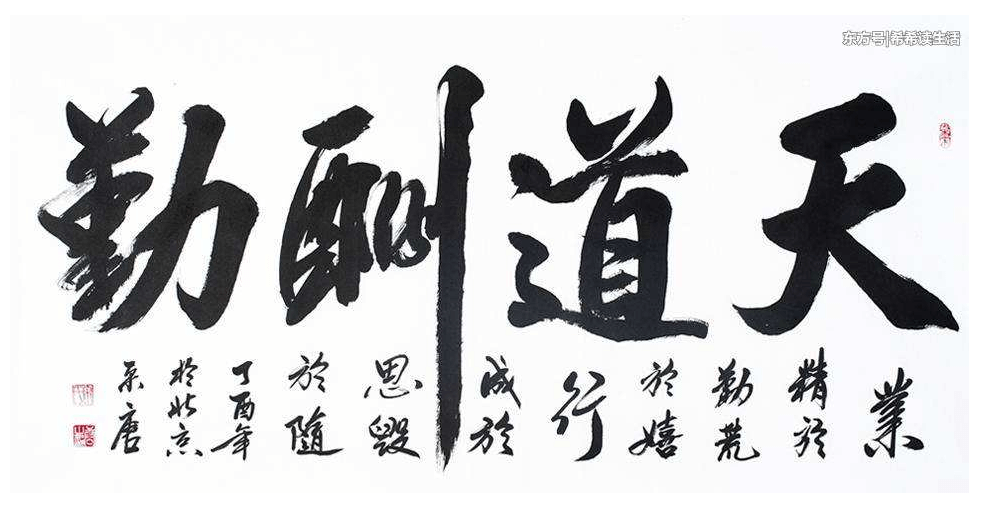 东方号|希希读生活
天道酬勤
業
精於
勤荒
於嬉
行
成於
思毀
於隨
丁酉年
於北京
唐